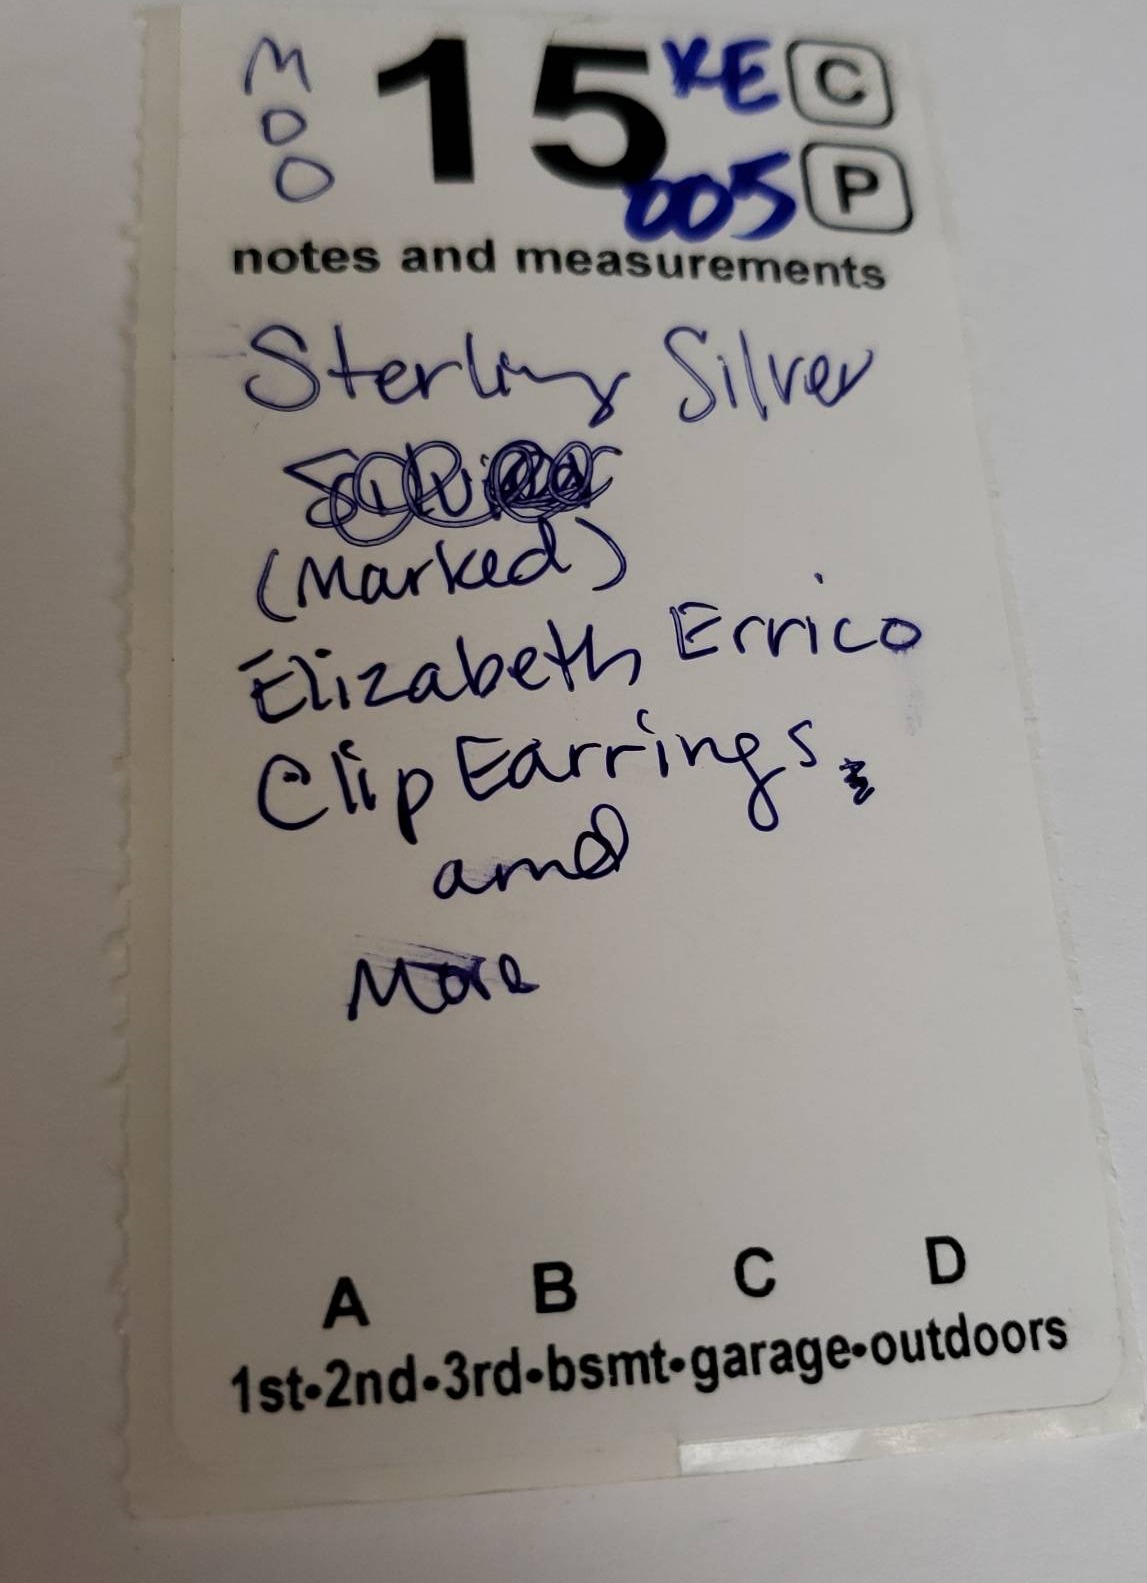 M
O
O
15
KE
C
005
P
notes and measurements
Sterling Silver
(Marked)
Elizabeth Errico
Clip Earrings,
and
More
A B C D
1st•2nd•3rd•bsmt•garage•outdoors